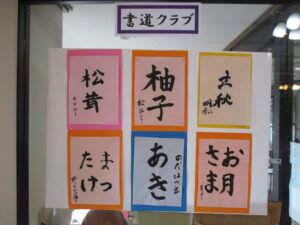 書道クラブ
松茸
柚子
立秋
まつ
たけ
あき
お月
さま